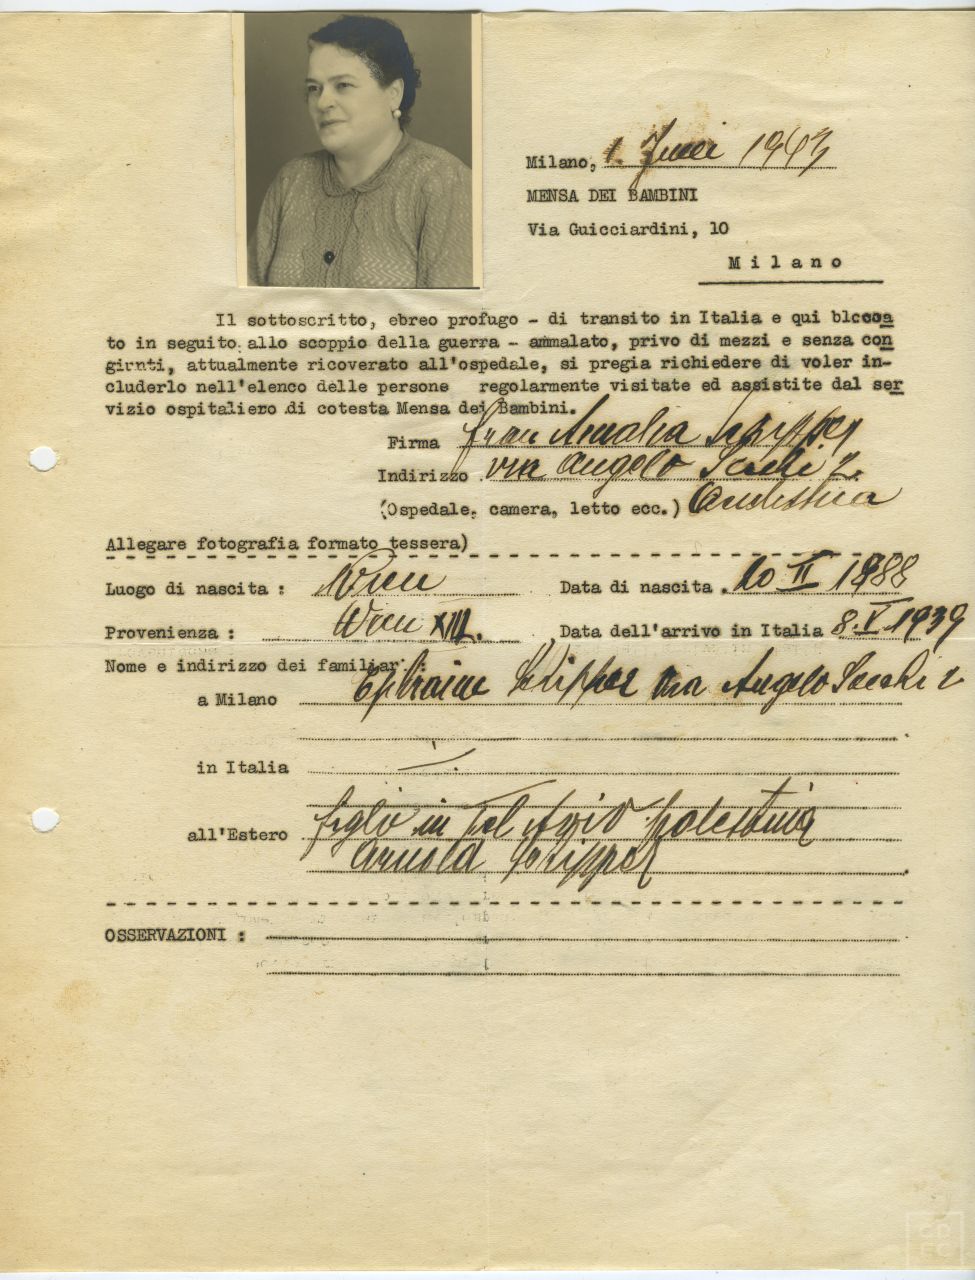 Milano, 1. Juni 1943
MENSA DEI BAMBINI
Via Guicciardini, 10
Milano
Il sottoscritto, ebreo profugo - di transito in Italia e qui blccca
to in seguito allo scoppio della guerra - ammalato, privo di mezzi e senza con
giunti, attualmente ricoverato all'ospedale, si pregia richiedere di voler in-
cluderlo nell'elenco delle persone regolarmente visitate ed assistite dal ser
vizio ospitaliero di cotesta Mensa dei Bambini.
Firma Frau Amalia
Indirizzo via Angelo 2.
(Ospedale, camera, letto ecc.)
Allegare fotografia formato tessera)
Luogo di nascita : Wien Data di nascita . 10 II 1888
Provenienza : Wien Data dell'arrivo in Italia 8. V. 1939
Nome e indirizzo dei familiari :
a Milano Ephraim via Angelo 2
in Italia
all'Estero figlio in Tel Aviv Palestina
Arnold
OSSERVAZIONI :